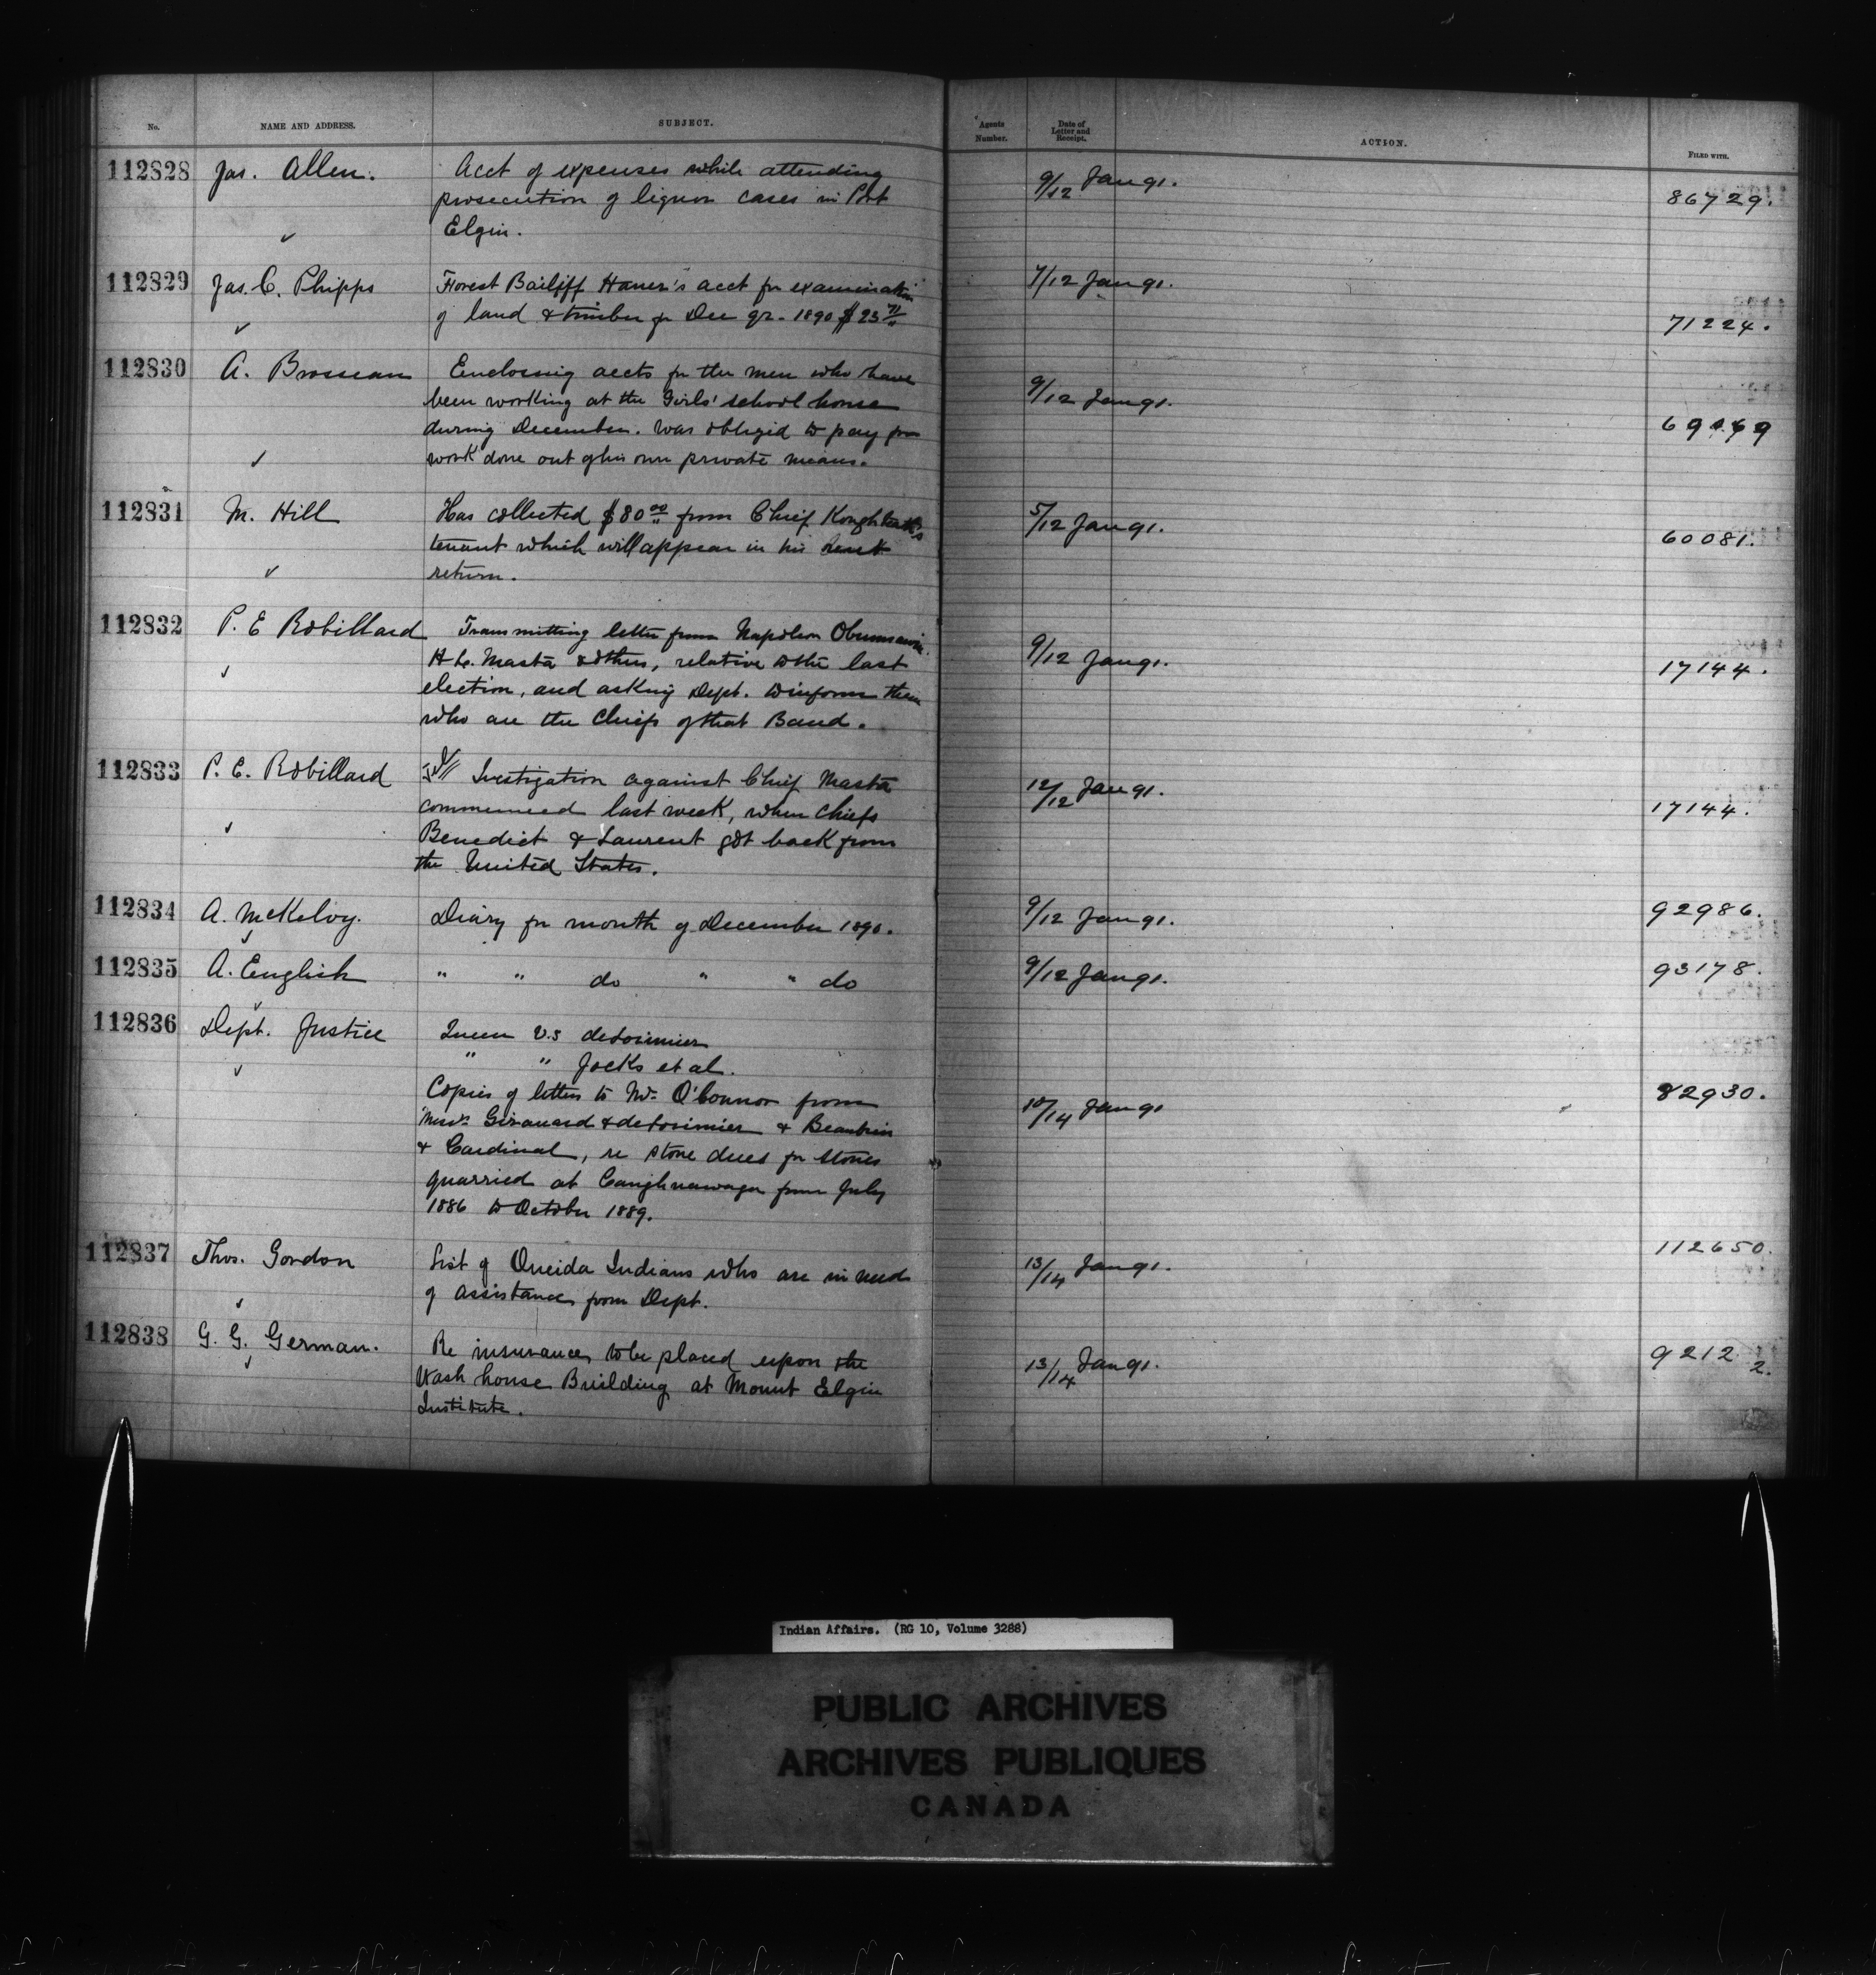 No.
NAME AND ADDRESS.
SUBJECT.
Agents Number.
Date of Letter and Receipt.
ACTION.
FILED WITH.
112828 Jas. Allen. Acct of expenses while attending 9/12 Jan 91. 86729.
prosecution of liquor cases in Port
Elgin.
112829 Jas. C. Phipps Forest Bailiff Haner's acct for examination 7/12 Jan 91. 71224.
of land & timber for Dec qr. 1890 $23
112830 A. Brosseau Enclosing accts for the men who have 9/12 Jan 91.
been working at the Girls' school house
during December. Was obliged to pay for
work done out of his own private means.
112831 M. Hill Has collected $80 00 from Chief 5/12 Jan 91. 60081.
tenant which will appear in his rent
return.
112832 P. E Robillard Transmitting letter from Napoleon Obumsawin 9/12 Jan 91. 17144.
H L. Masta & others, relative to the last
election, and asking Dept. to inform them
who are the Chiefs of that Band.
112833 P. E. Robillard Investigation against Chief Masta 12/12 Jan 91. 17144.
commenced last week, when Chiefs
Benedict & Laurent got back from
the United States.
112834 A. McKelvy. Diary for month of December 1890. 9/12 Jan 91. 92986.
112835 A. English " " do " " do 9/12 Jan 91. 93178.
112836 Dept. Justice Queen v.s deLorimier 10/14 Jan 91 82930.
" " Jocks et al.
Copies of letters to Mr. O'Connor from
Messrs Girouard & deLorimier & Beaudin
& Cardinal, re stone dues for stones
quarried at Caughnawaga from July
1886 to October 1889.
112837 Thos. Gordon List of Oneida Indians who are in need 13/14 Jan 91. 112650.
of assistance from Dept.
112838 G. G. German. Re insurance to be placed upon the 13/14 Jan 91. 92122.
Wash house Building at Mount Elgin
Institute.
Indian Affairs. (RG 10, Volume 3288)
PUBLIC ARCHIVES
ARCHIVES PUBLIQUES
CANADA